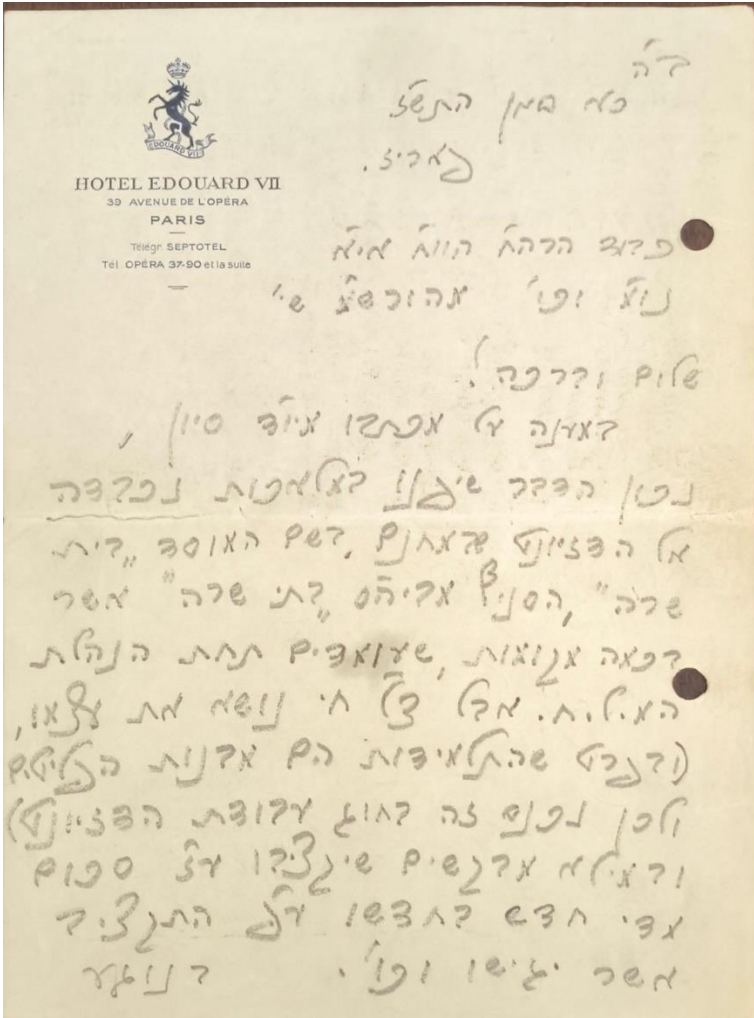 EDOUARD VII
HOTEL EDOUARD VII
39 AVENUE DE L'OPÉRA
PARIS
Télégr. SEPTOTEL
Tél. OPÉRA 37-90 et la suite
ב"ה
כא סיון התש"ז
פאריז.
כבוד הרה"ח הוו"ח אי"א
נו"מ וכו' מהורש"ז שי'
שלום וברכה!
במענה על מכתבו מי"ד סיון,
נכון הדבר שיפנו במלאכות נכבדה
אל הדזשוינט שבאחנם, בשם המוסד „בית
שרה", הסניף אביהם „בתי שרה" אשר
בכמה מקומות, שעומדים תחת הנהלת
המ.ל.ח. אבל כל חי נושא את עצמו,
(ובפרט שהתלמידות הם מבנות הפליטים
ולכן נכנס זה בחוג עבודת הדזשוינט)
ובמילא מבקשים שיקציבו ע"ז סכום
מדי חדש בחדשו ע"פ התקציב
אשר יגישו וכו'. בנוגע